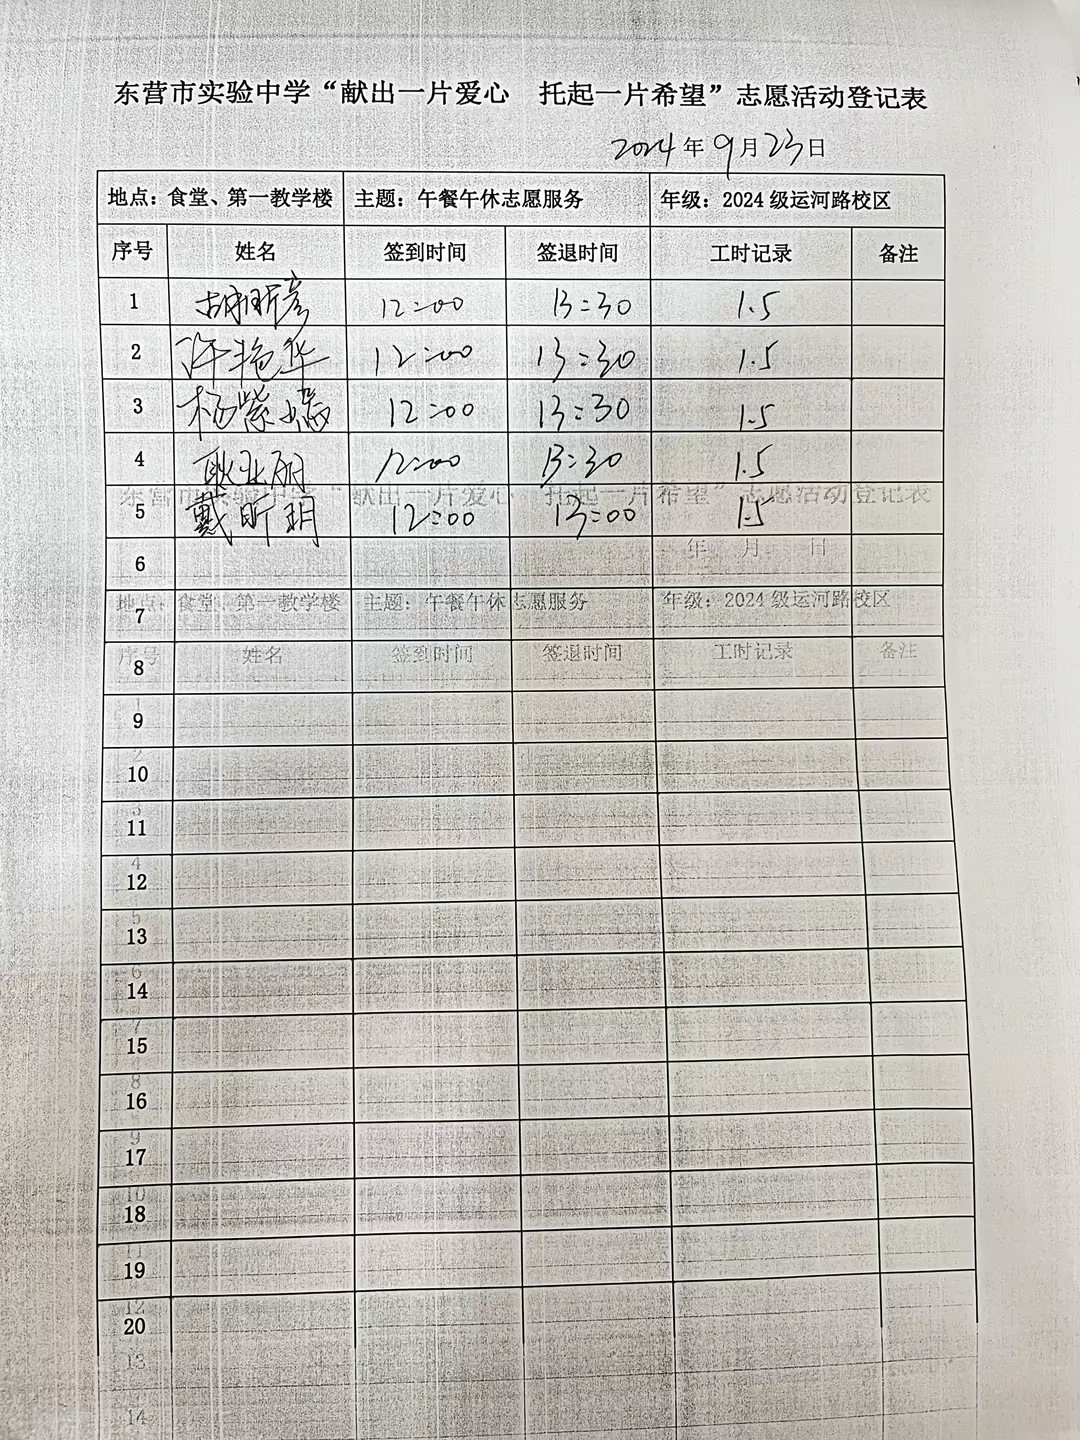 东营市实验中学“献出一片爱心 托起一片希望”志愿活动登记表
2024年9月23日
地点：食堂、第一教学楼 主题：午餐午休志愿服务 年级：2024级运河路校区
序号 姓名 签到时间 签退时间 工时记录 备注
1 胡昕彦 12:00 13:30 1.5
2 许艳华 12:00 13:30 1.5
3 杨紫 12:00 13:30 1.5
4 耿亚丽 12:00 13:30 1.5
东营市实验中学“献出一片爱心 托起一片希望”志愿活动登记表
5 戴昕玥 12:00 13:00 1.5
年 月 日
6
地点：食堂、第一教学楼 主题：午餐午休志愿服务 年级：2024级运河路校区
7
序号 姓名 签到时间 签退时间 工时记录 备注
8
1
9
2
10
3
11
4
12
5
13
6
14
7
15
8
16
9
17
10
18
11
19
12
20
13
14